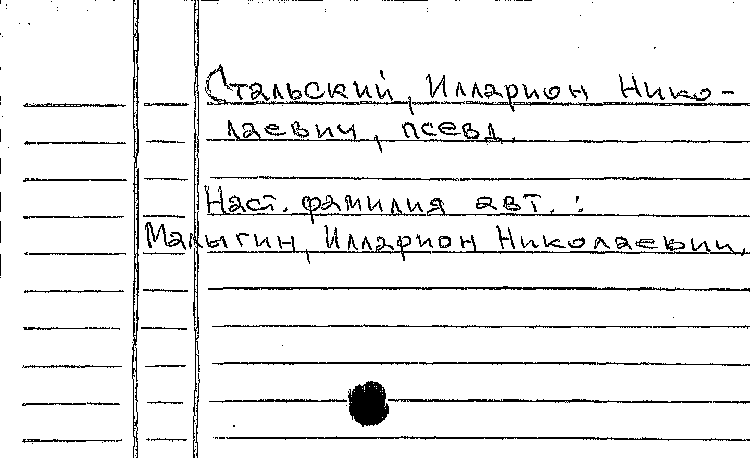 Стальский, Илларион Нико-
лаевич, псевд.
Наст. фамилия авт.:
Малыгин, Илларион Николаевич.